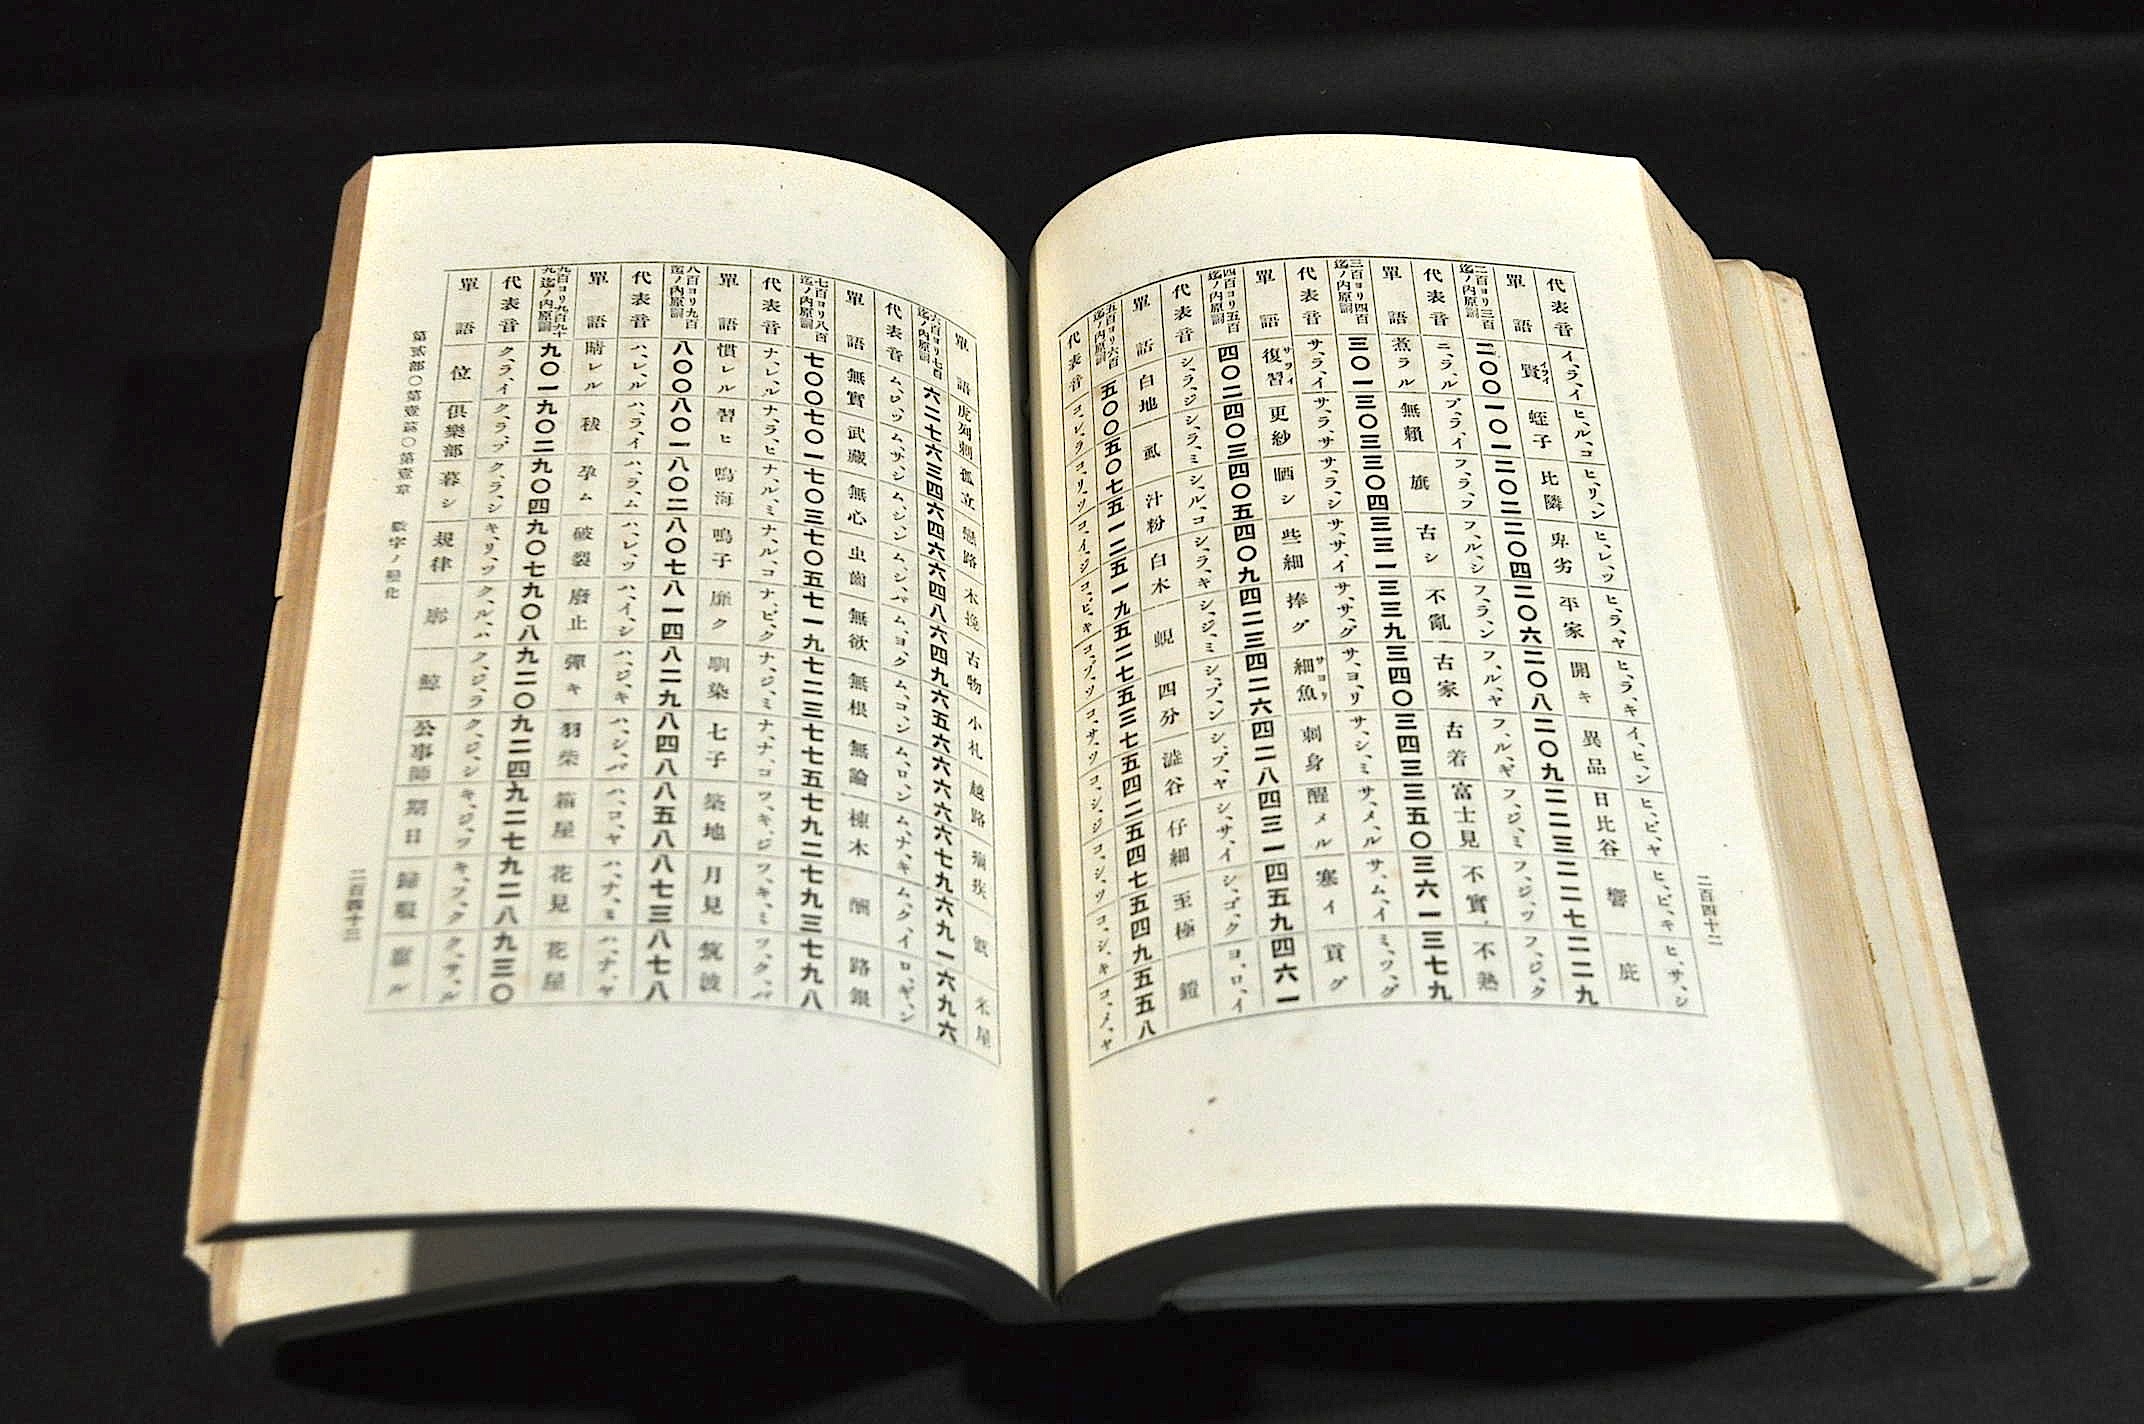 代表音 イ、ラ、イ ヒ、ル、コ ヒ、リ、ン ヒ、レ、ツ ヒ、ラ、ヤ ヒ、ラ、キ イ、ヒ、ン ヒ、ビ、ヤ ヒ、ビ、キ ヒ、サ、シ
單語 賢イライ 蛭子 比隣 卑劣 平家 開キ 異品 日比谷 響 庇
二百ヨリ三百迄ノ内原詞 二〇〇 一〇一 二〇二 二〇四 二〇六 二〇八 二〇九 二二三 二二七 二二九
代表音 ニ、ラ、ル ブ、ラ、イ フ、ラ、フ フ、ル、シ フ、ラ、ン フ、ル、ヤ フ、ル、ギ フ、ジ、ミ フ、ジ、ツ フ、ジ、ク
單語 煮ラル 無賴 旗 古シ 不亂 古家 古着 富士見 不實 不熟
三百ヨリ四百迄ノ内原詞 三〇一 三〇三 三〇四 三三一 三三九 三四〇 三四三 三五〇 三六一 三七九
代表音 サ、ラ、イ サ、ラ、サ サ、ラ、シ サ、サ、イ サ、サ、グ サ、ヨ、リ サ、シ、ミ サ、メ、ル サ、ム、イ ミ、ツ、グ
單語 復習サライ 更紗 晒シ 些細 捧グ 細魚サヨリ 刺身 醒メル 塞イ 貢グ
四百ヨリ五百迄ノ内原詞 四〇二 四〇三 四〇五 四〇九 四二三 四二六 四二八 四三一 四五九 四六一
代表音 シ、ラ、ジ シ、ラ、ミ シ、ル、コ シ、ラ、キ シ、ジ、ミ シ、ブ、ン シ、ブ、ヤ シ、サ、イ シ、ゴ、ク ヨ、ロ、イ
單語 白地 虱 汁粉 白木 蜆 四分 澁谷 仔細 至極 鎧
五百ヨリ六百迄ノ内原詞 五〇〇 五〇七 五一二 五一九 五二七 五三七 五四二 五四七 五四九 五五八
代表音 コ、レ、ラ コ、リ、ツ コ、イ、ジ コ、ビ、キ コ、ブ、ツ コ、サ、ツ コ、シ、ジ コ、シ、ツ コ、シ、キ コ、メ、ヤ
二百四十二
單語 虎列剌 孤立 戀路 木挽 古物 小札 越路 痼疾 甑 米屋
六百ヨリ七百迄ノ内原詞 六二七 六三四 六四六 六四八 六四九 六五六 六六六 六七九 六九一 六九六
代表音 ム、サ、シ ム、シ、ン ム、シ、バ ム、ヨ、ク ム、コ、ン ム、ロ、ン ム、ナ、キ ム、ク、イ ロ、ギ、ン
單語 無實 武藏 無心 虫齒 無欲 無根 無論 棟木 酬 路銀
七百ヨリ八百迄ノ内原詞 七〇〇 七〇一 七〇三 七〇五 七一九 七二三 七七五 七九二 七九三 七九八
代表音 ナ、レ、ル ナ、ラ、ヒ ナ、ル、ミ ナ、ル、コ ナ、ビ、ク ナ、ジ、ミ ナ、ナ、コ ツ、キ、ジ ツ、キ、ミ ツ、ク、バ
單語 慣レル 習ヒ 鳴海 鳴子 靡ク 馴染 七子 築地 月見 筑波
八百ヨリ九百迄ノ内原詞 八〇〇 八〇一 八〇二 八〇七 八一四 八二九 八四八 八五八 八七三 八七八
代表音 ハ、レ、ル ハ、ラ、イ ハ、ラ、ム ハ、レ、ツ ハ、イ、シ ハ、ジ、キ ハ、シ、バ ハ、コ、ヤ ハ、ナ、ミ ハ、ナ、ヤ
單語 晴レル 秡 孕ム 破裂 廢止 彈キ 羽柴 箱屋 花見 花屋
九百ヨリ九百九十九迄ノ内原詞 九〇一 九〇二 九〇四 九〇七 九〇八 九二〇 九二四 九二七 九二八 九三〇
代表音 ク、ラ、イ ク、ラ、ブ ク、ラ、シ キ、リ、ツ ク、ル、ハ ク、ジ、ラ ク、ジ、シ キ、ジ、ツ キ、フ、ク ク、サ、ル
單語 位 俱樂部 暮シ 規律 廓 鯨 公事師 期日 歸服 腐ル
第貳部〇第壹篇〇第壹章 數字ノ變化
二百四十三